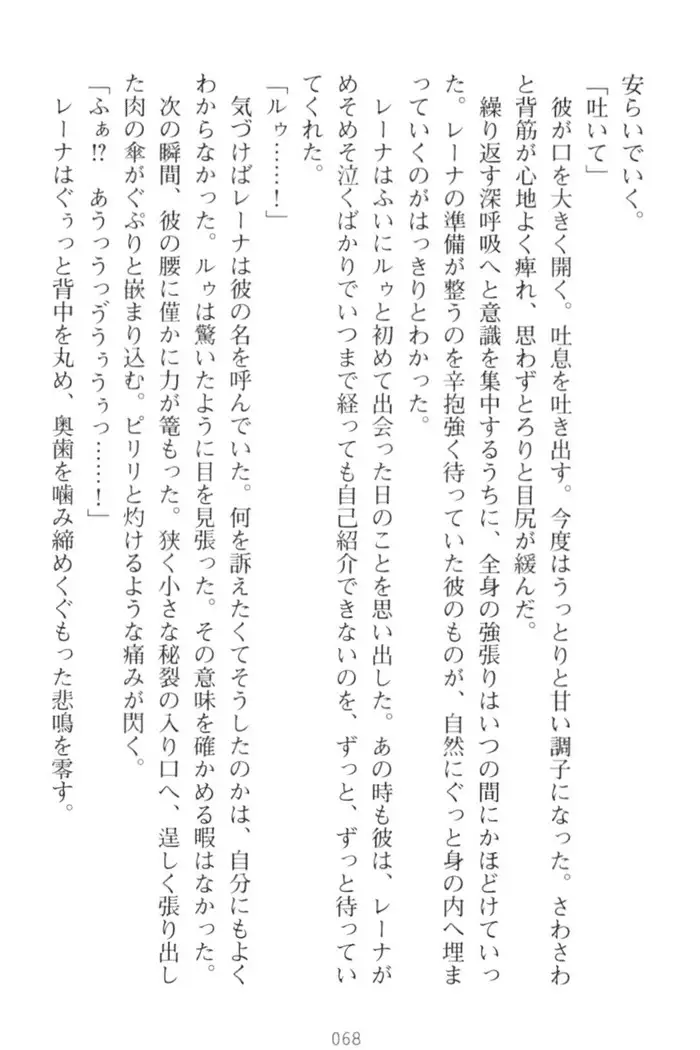 安らいでいく。
「吐いて」
　彼が口を大きく開く。吐息を吐き出す。今度はうっとりと甘い調子になった。さわさわ
と背筋が心地よく痺れ、思わずとろりと目尻が緩んだ。
　繰り返す深呼吸へと意識を集中するうちに、全身の強張りはいつの間にかほどけていっ
た。レーナの準備が整うのを辛抱強く待っていた彼のものが、自然にぐっと身の内へ埋ま
っていくのがはっきりとわかった。
　レーナはふいにルゥと初めて出会った日のことを思い出した。あの時も彼は、レーナが
めそめそ泣くばかりでいつまで経っても自己紹介できないのを、ずっと、ずっと待ってい
てくれた。
「ルゥ……！」
　気づけばレーナは彼の名を呼んでいた。何を訴えたくてそうしたのかは、自分にもよく
わからなかった。ルゥは驚いたように目を見張った。その意味を確かめる暇はなかった。
　次の瞬間、彼の腰に僅かに力が篭もった。狭く小さな秘裂の入り口へ、逞しく張り出し
た肉の傘がぐぷりと嵌まり込む。ピリリと灼けるような痛みが閃く。
「ふぁ!?　あうっうっゔうぅうぅっ……！」
　レーナはぐぅっと背中を丸め、奥歯を噛み締めくぐもった悲鳴を零す。
068